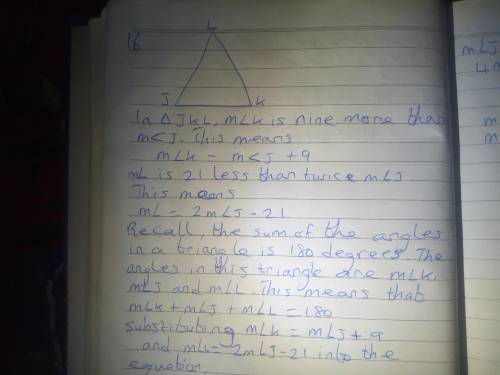 16
L
J
K
In △JKL, m∠K is nine more than
m<J. This means
m∠K = m<J +9
mL is 21 less than twice m∠J
This means
mL = 2m∠J - 21
Recall, the sum of the angles
in a triangle is 180 degrees. The
angles in this triangle are m∠K,
m∠J and m∠L. This means that
m∠K + m∠J + m∠L = 180
substituting m∠K = m∠J + 9
and m∠L = 2m∠J - 21 into the
equation,
m∠J
4m
m
m